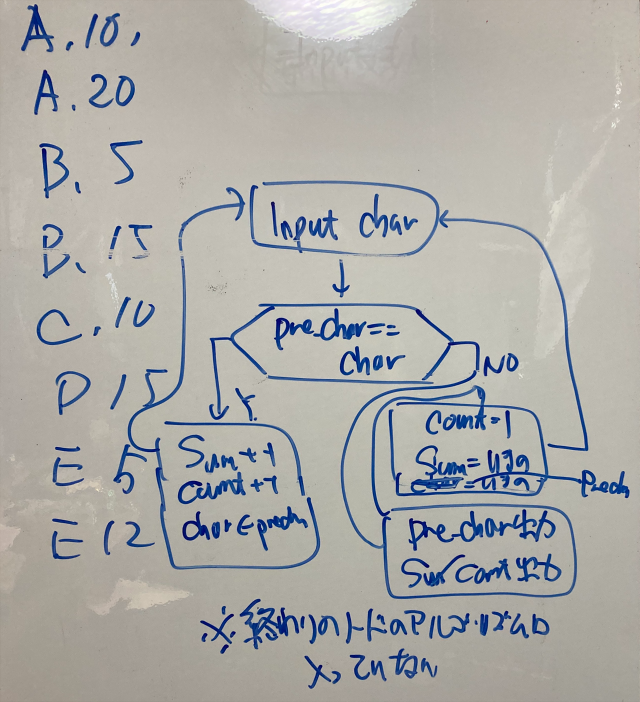 A. 10,
A. 20
B. 5
B. 15
C. 10
D 15
E 5
E 12
Input char
pre-char==
char
Y.
NO
Sum++
count++
char∈prech
count=1
Sum=
prech
pre-char出力
Sum count出力
※終わりのノードのアルゴリズムは